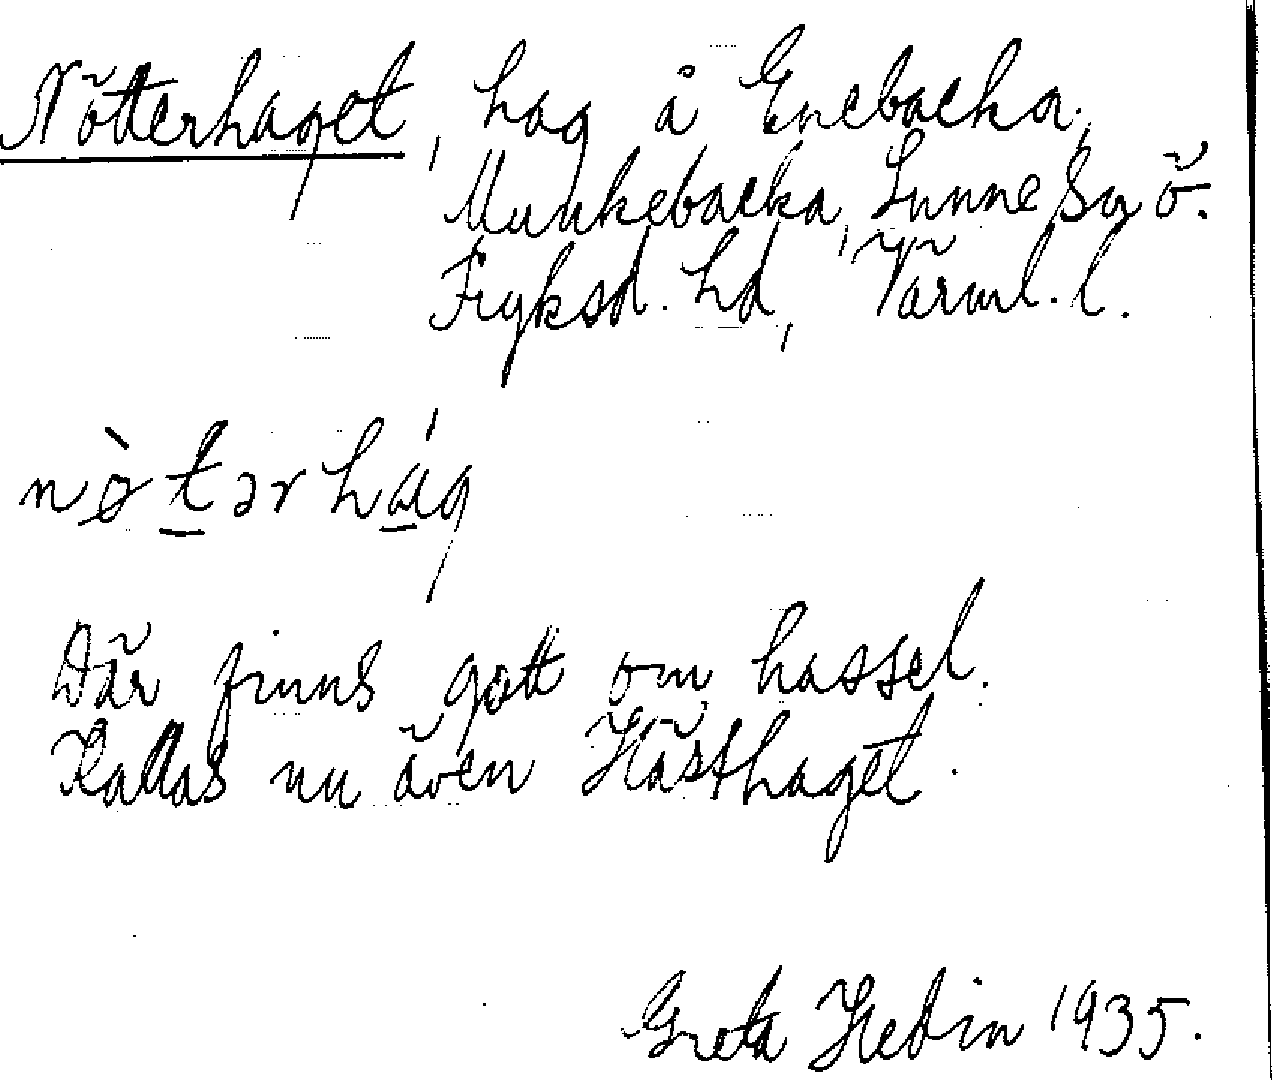 Nötterhaget, hag å Enebacka,
Munkebacka, Sunne Sn ö.
Fryksd. hd, Värml. l.
nø̀tərhág
Där finns gott om hassel.
Kallas nu även Hästhaget.
Greta Hedin 1935.